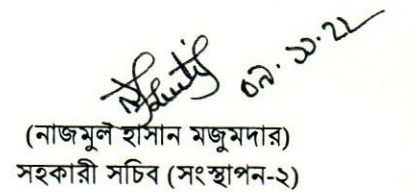 ০৯.১০.২২
(নাজমুল হাসান মজুমদার)
সহকারী সচিব (সংস্থাপন-২)